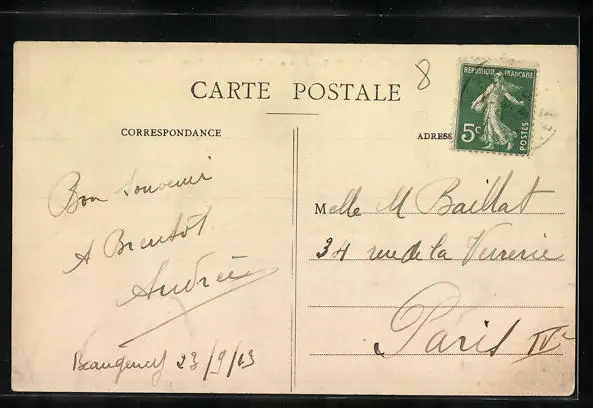 CARTE POSTALE
8
REPUBLIQUE FRANÇAISE
5c
POSTES
CORRESPONDANCE
ADRESSE
Bon souvenir
A Bientôt
Andrée
Beaugency 23/9/13
Melle M Baillat
34 rue de la Verrerie
Paris IVe